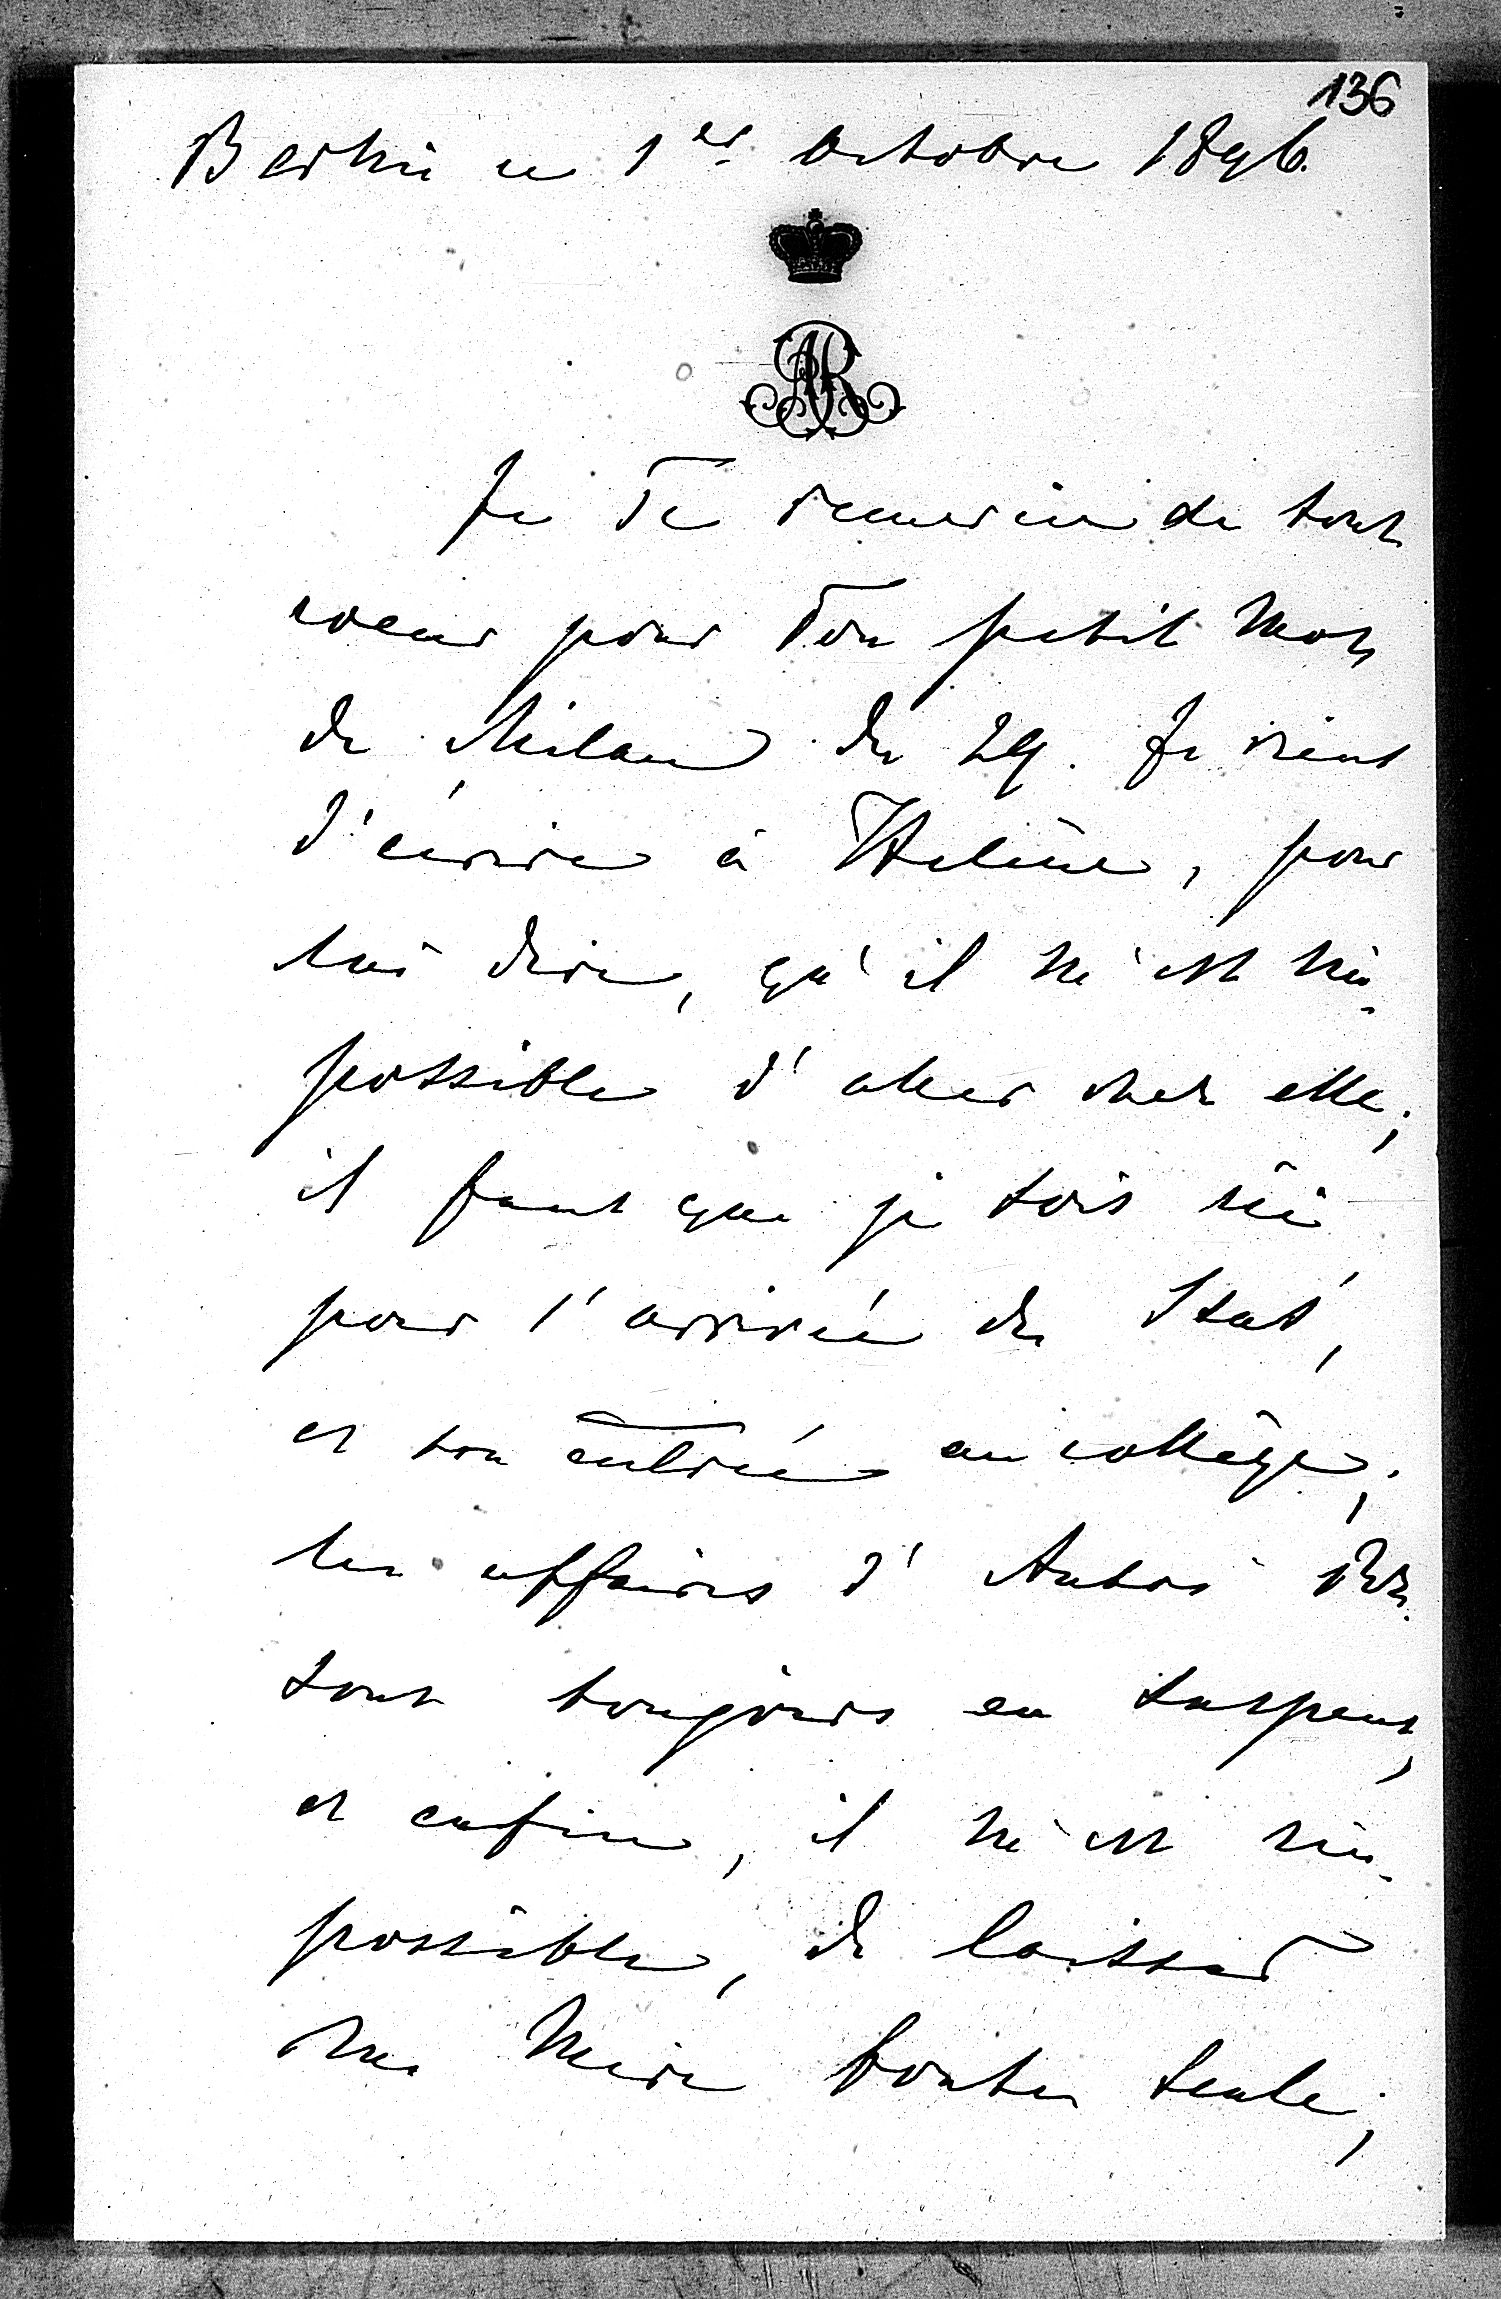 136
Berlin ce 1er Octobre 1896.
AR
Je Te remercie de tout
coeur pour Ton petit mot
de Milan du 29. Je viens
d'écrire à Hélène, pour
lui dire, qu'il m'est im-
possible d'aller chez elle;
il faut que je sois ici
pour l'arrivée de Stas',
et son entrée au collège;
les affaires d'Antoni
sont toujours en suspens,
et enfin, il m'est im-
possible, de laisser
ma Mère toute seule;